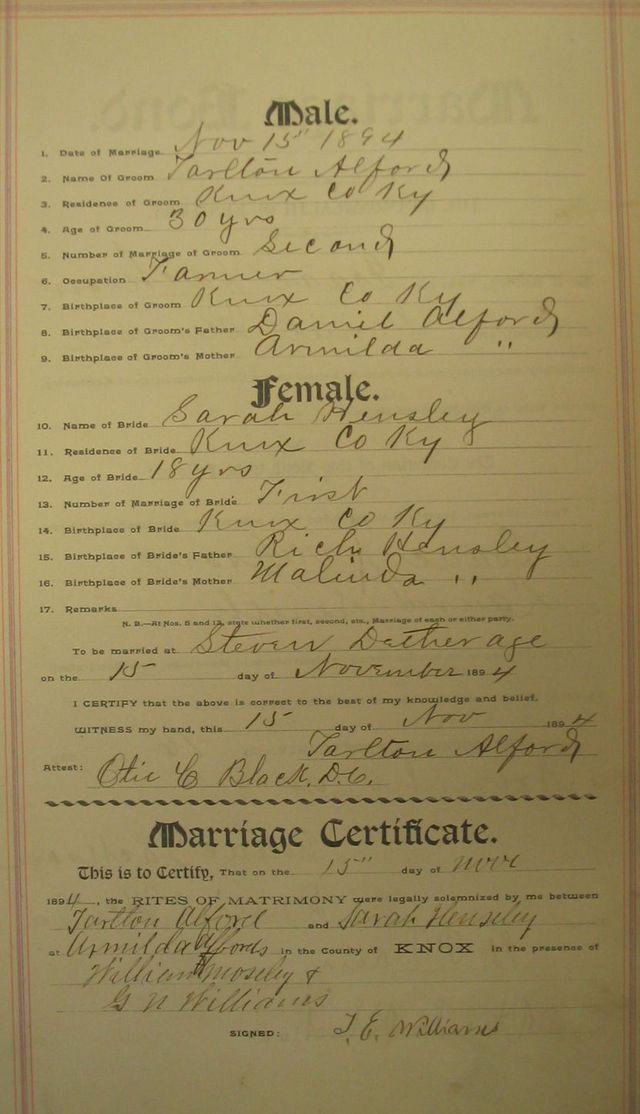 Male.
1. Date of Marriage Nov 15" 1894
2. Name Of Groom Tarlton Alford
3. Residence of Groom Knox Co Ky
4. Age of Groom 30 yrs
5. Number of Marriage of Groom Second
6. Occupation Farmer
7. Birthplace of Groom Knox Co Ky
8. Birthplace of Groom's Father Daniel Alford
9. Birthplace of Groom's Mother Armilda "
Female.
10. Name of Bride Sarah Hensley
11. Residence of Bride Knox Co Ky
12. Age of Bride 18 yrs
13. Number of Marriage of Bride First
14. Birthplace of Bride Knox Co Ky
15. Birthplace of Bride's Father Rich Hensley
16. Birthplace of Bride's Mother Malinda "
17. Remarks
N. B.—At Nos. 5 and 13, state whether first, second, etc., Marriage of each or either party.
To be married at Steven Detherage
on the 15 day of November 1894
I CERTIFY that the above is correct to the best of my knowledge and belief.
WITNESS my hand, this 15 day of Nov 1894
Tarlton Alford
Attest: Otis C Black, D.C.
Marriage Certificate.
This is to Certify, That on the 15" day of
1894, the RITES OF MATRIMONY were legally solemnized by me between
Tarlton Alford and Sarah Hensley
at Armilda Alfords in the County of KNOX in the presence of
William Mosely &
G N Williams
SIGNED: T. E. Williams